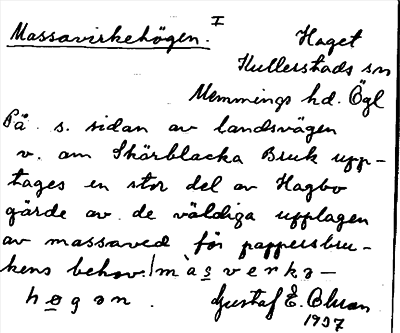 Massavirkehögen. I
Haget
Kullerstads sn
Memmings hd. Ögl
På s. sidan av landsvägen
v. om Skärblacka Bruk upp-
tages en stor del av Hagbo
gärde av de väldiga upplagen
av massaved för pappersbru-
kens behov. / màsverkə-
høgən.
Gustaf E. Bluan
1937